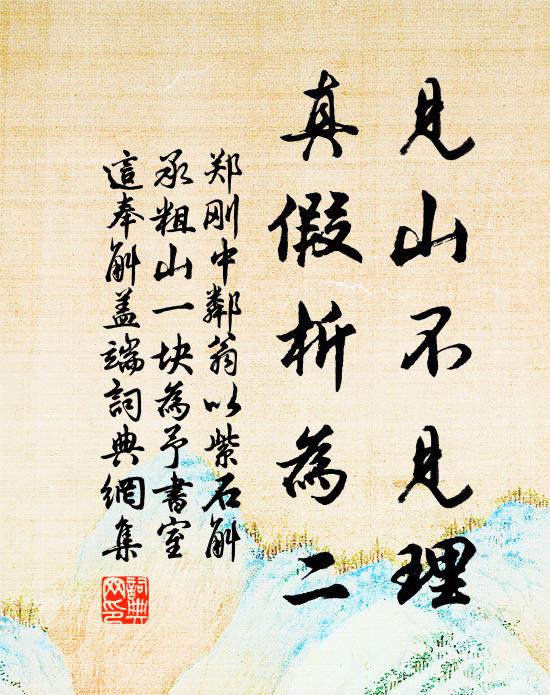 见山不见理
真假析为二
郑刚中鄰翁以紫石斛
承粗山一块為予書室
這奉斛盖端詞典網集
詞典
网